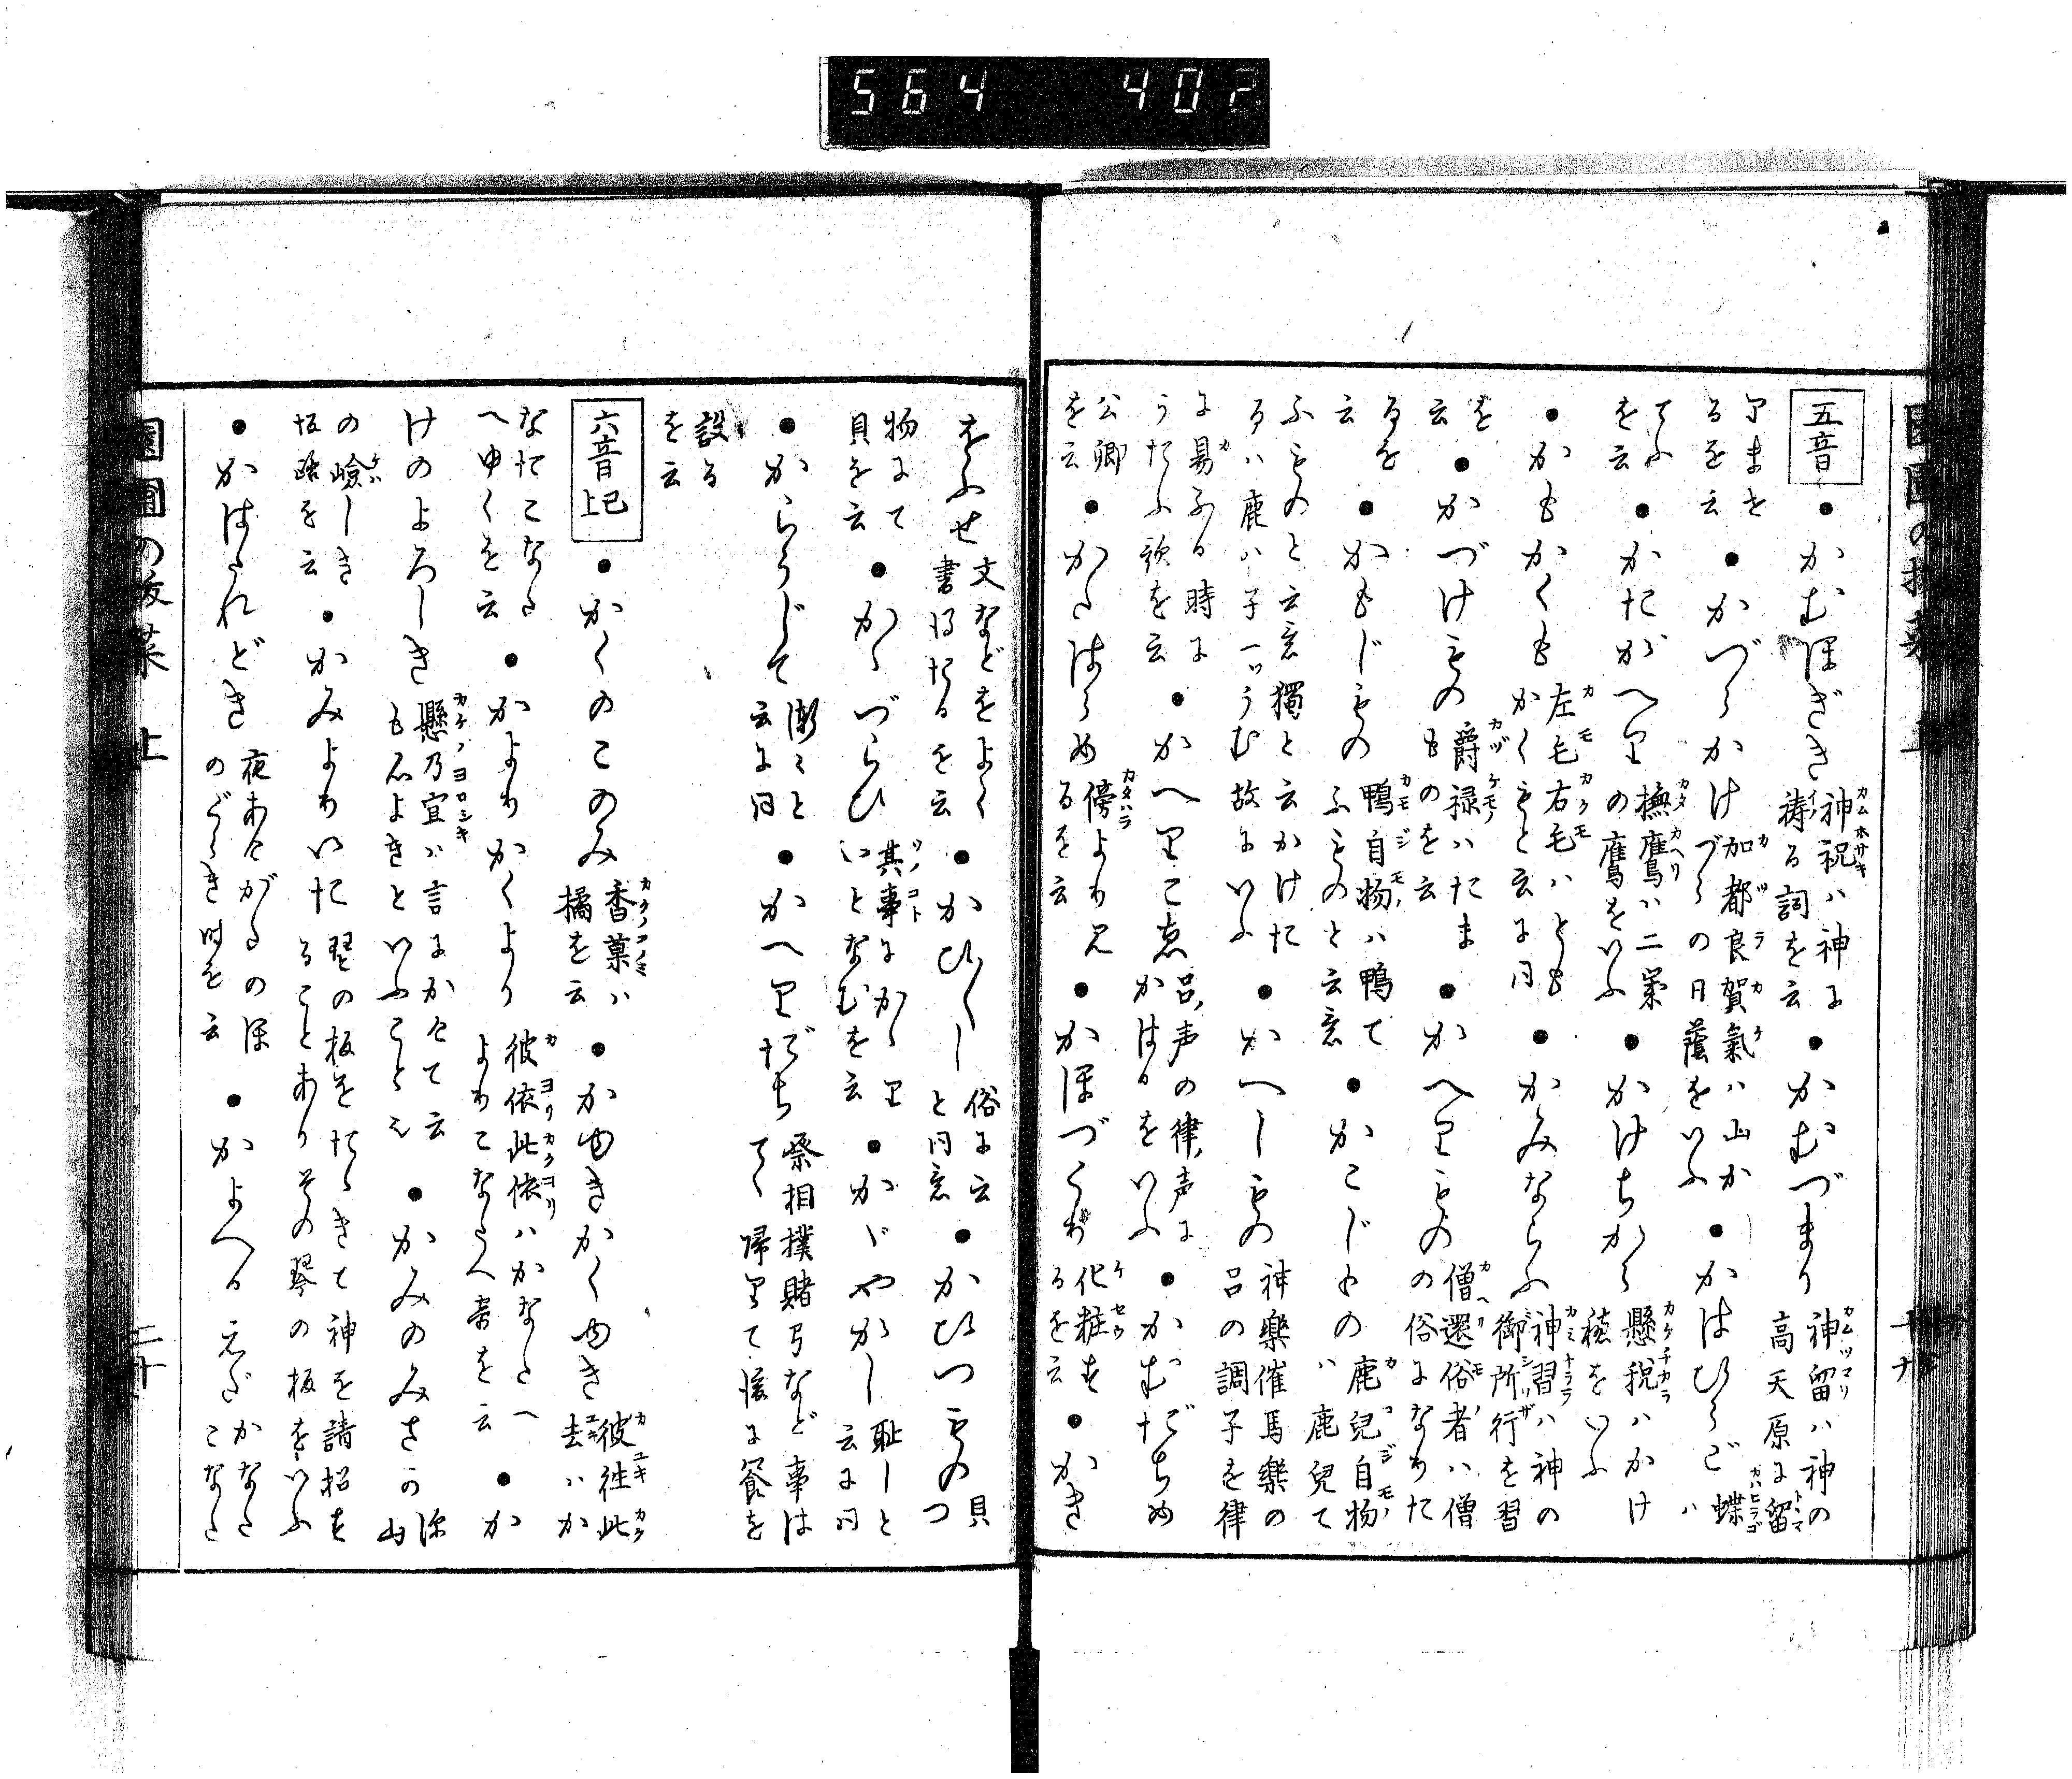 564 402
五音
●かむほぎき 神祝ハ神に祷る詞を云 ●かむづまり 神留ハ神の高天原に留
りますを云 ●かづらかけ 加都良賀氣ハ山かづらの日蔭をいふ ●かはひらご 蝶ハ
てふを云 ●かたがへり 撫鷹ハ二歳の鷹をいふ ●かけちから 懸税ハかけ穂をいふ
●かもかくも 左毛右毛ハともかくもと云に同 ●かみならふ 神習ハ神の御所行を習
を云 ●かづけもの 爵禄ハたまものを云 ●かへりもの 僧還俗者ハ僧の俗になりた
るを云 ●かもじもの 鴨自物ハ鴨てふものと云意 ●かこじもの 鹿兒自物ハ鹿兒て
ふものと云意獨と云かけたるハ鹿ハ子一ッうむ故にいふ ●かへしもの 神樂催馬樂の呂の調子を律
に易ふる時にうたふ歌を云 ●かへりこゑ 呂声の律声にかはるをいふ ●かむだちめ
公卿を云 ●かたはらめ 傍より見るを云 ●かほづくり 化粧するを云 ●かき
をふせ 文などをよく書得たるを云 ●かひくし 俗に云と同意 ●かひつもの 貝つ
物にて貝を云 ●かゝづらひ 其事にかゝりいとなむを云 ●かゞやかし 耻しと云に同
●からうじて 漸々と云に同 ●かへりだち 祭相撲賭弓など事はてゝ帰りて後に饗を
設るを云
六音已上
●かくのこのみ 香菓ハ橘を云 ●かゆきかくゆき 彼往此去ハか
なたこなたへゆくを云 ●かよりかくより 彼依此依ハかなたへよりこなたへ寄を云 ●か
けのよろしき 懸乃宜ハ言にかけて云も名よきといふことゝ ●かみのみさか 深山
の嶮しき坂路を云 ●かみよりいた 琴の板をたゝきて神を請招することありその琴の板をいふ
●かはたれどき 夜あけがたのほのぐらき時を云 ●かよへるえだ かなたこなた
二十